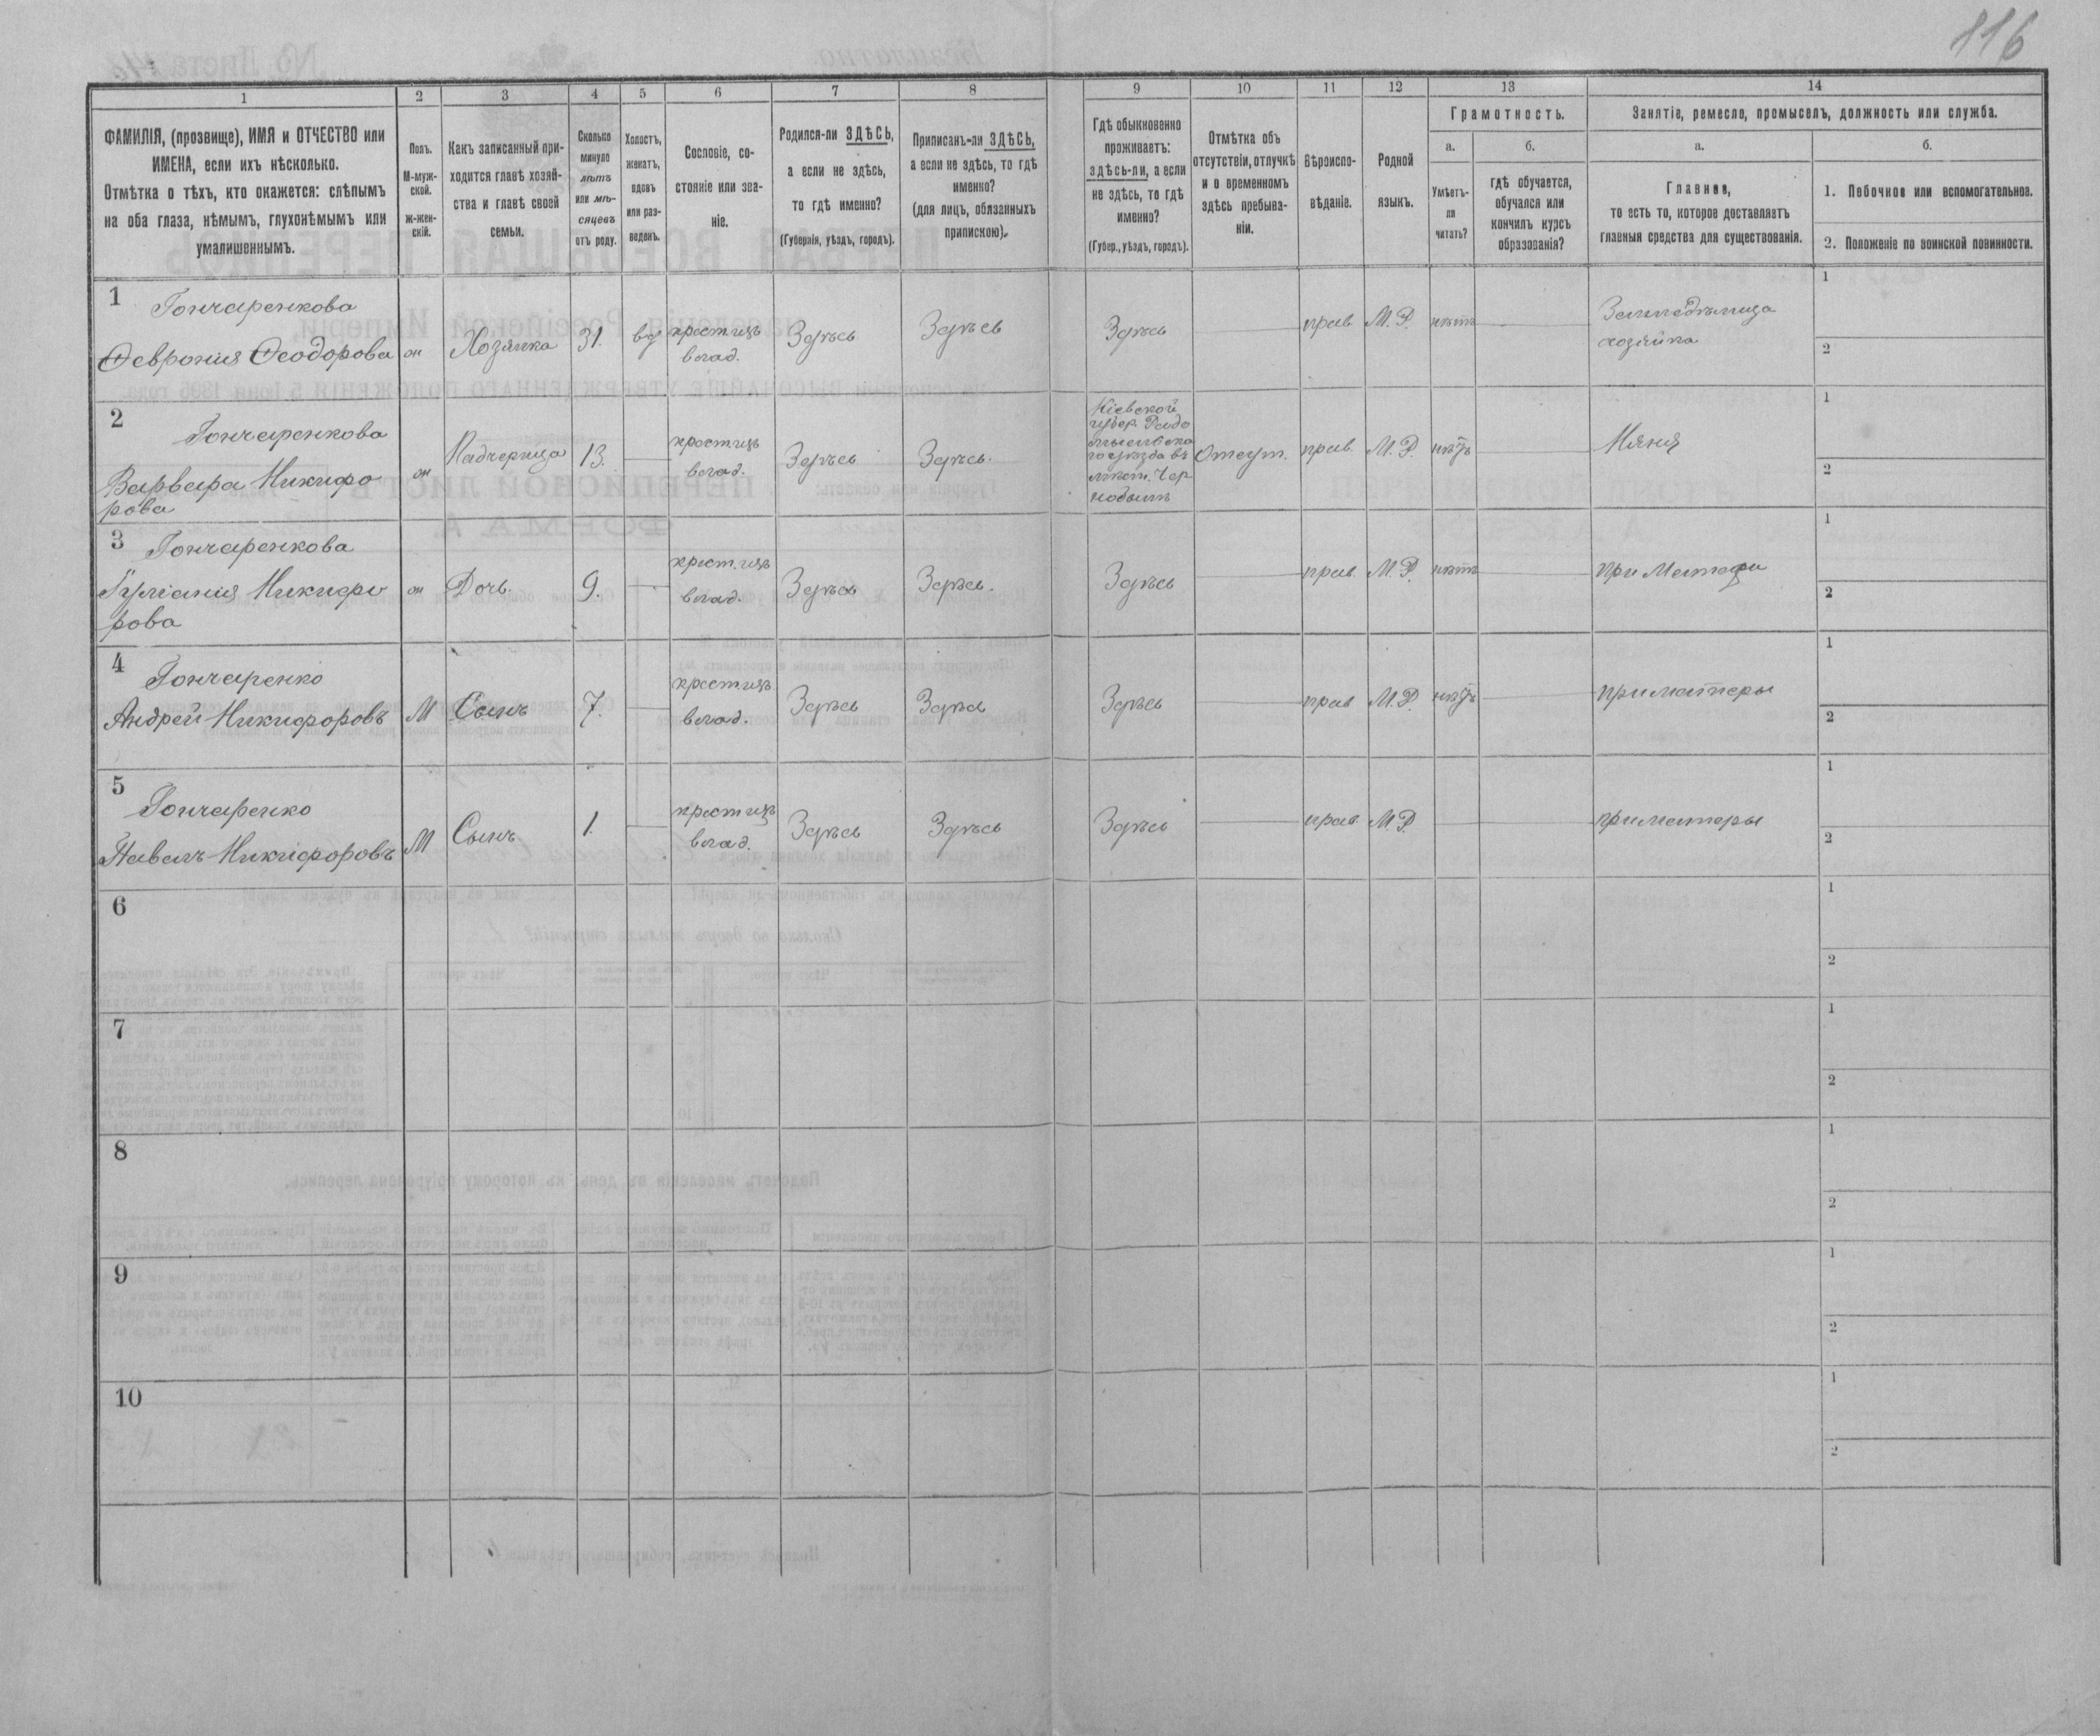 116
1
2
3
4
5
6
7
8
9
10
11
12
13
14
ФАМИЛІЯ, (прозвище), ИМЯ и ОТЧЕСТВО или
ИМЕНА, если ихъ нѣсколько.
Отмѣтка о тѣхъ, кто окажется: слѣпымъ
на оба глаза, нѣмымъ, глухонѣмымъ или
умалишеннымъ.
Полъ.
М-муж-
ской.
Ж-жен-
скій.
Какъ записанный при-
ходится главѣ хозяй-
ства и главѣ своей
семьи.
Сколько
минуло
лѣтъ
или мѣ-
сяцевъ
отъ роду.
Холостъ,
женатъ,
вдовъ
или раз-
веденъ.
Сословіе, со-
стояніе или зва-
ніе.
Родился-ли ЗДѢСЬ,
а если не здѣсь,
то гдѣ именно?
(Губернія, уѣздъ, городъ).
Приписанъ-ли ЗДѢСЬ,
а если не здѣсь, то гдѣ
именно?
(для лицъ, обязанныхъ
припискою).
Гдѣ обыкновенно
проживаетъ:
здѣсь-ли, а если
не здѣсь, то гдѣ
именно?
(Губер., уѣздъ, городъ).
Отмѣтка объ
отсутствіи, отлучкѣ
и о временномъ
здѣсь пребыва-
ніи.
Вѣроиспо-
вѣданіе.
Родной
языкъ.
Грамотность.
а.
Умѣетъ-
ли
читать?
б.
гдѣ обучается,
обучался или
кончилъ курсъ
образованія?
Занятіе, ремесло, промыселъ, должность или служба.
а.
Главное,
то есть то, которое доставляетъ
главныя средства для существованія.
б.
1. Побочное или вспомогательное.
2. Положеніе по воинской повинности.
1
Гончаренкова
Февронія Феодорова
ж
Хозяйка
31.
вд
крест. изъ
влад.
Здѣсь
Здѣсь
Здѣсь
прав.
М. Р.
нѣтъ
Земледѣлица
хозяйка
1
2
2
Гончаренкова
Варвара Никифо
рова
ж
Падчерица
13.
крест. изъ
влад.
Здѣсь
Здѣсь.
Кіевской
губер. Радо
мысльска
го уѣзда въ
мѣст. Чер
нобылѣ
Отсут.
прав.
М. Р.
нѣтъ
Няня
1
2
3
Гончаренкова
Іуліанія Никифо
рова
ж
Дочь.
9.
крест. изъ
влад.
Здѣсь
Здѣсь.
Здѣсь
прав.
М. Р.
нѣтъ
при Матери
1
2
4
Гончаренко
Андрей Никифоровъ
М
Сынъ
7.
крест. изъ
влад.
Здѣсь
Здѣсь
Здѣсь
прав
М. Р.
нѣтъ
при матеры
1
2
5
Гончаренко
Павелъ Никифоровъ
М
Сынъ
1.
крест изъ
влад.
Здѣсь
Здѣсь
Здѣсь
прав.
М. Р.
при матеры
1
2
6
1
2
7
1
2
8
1
2
9
1
2
10
1
2